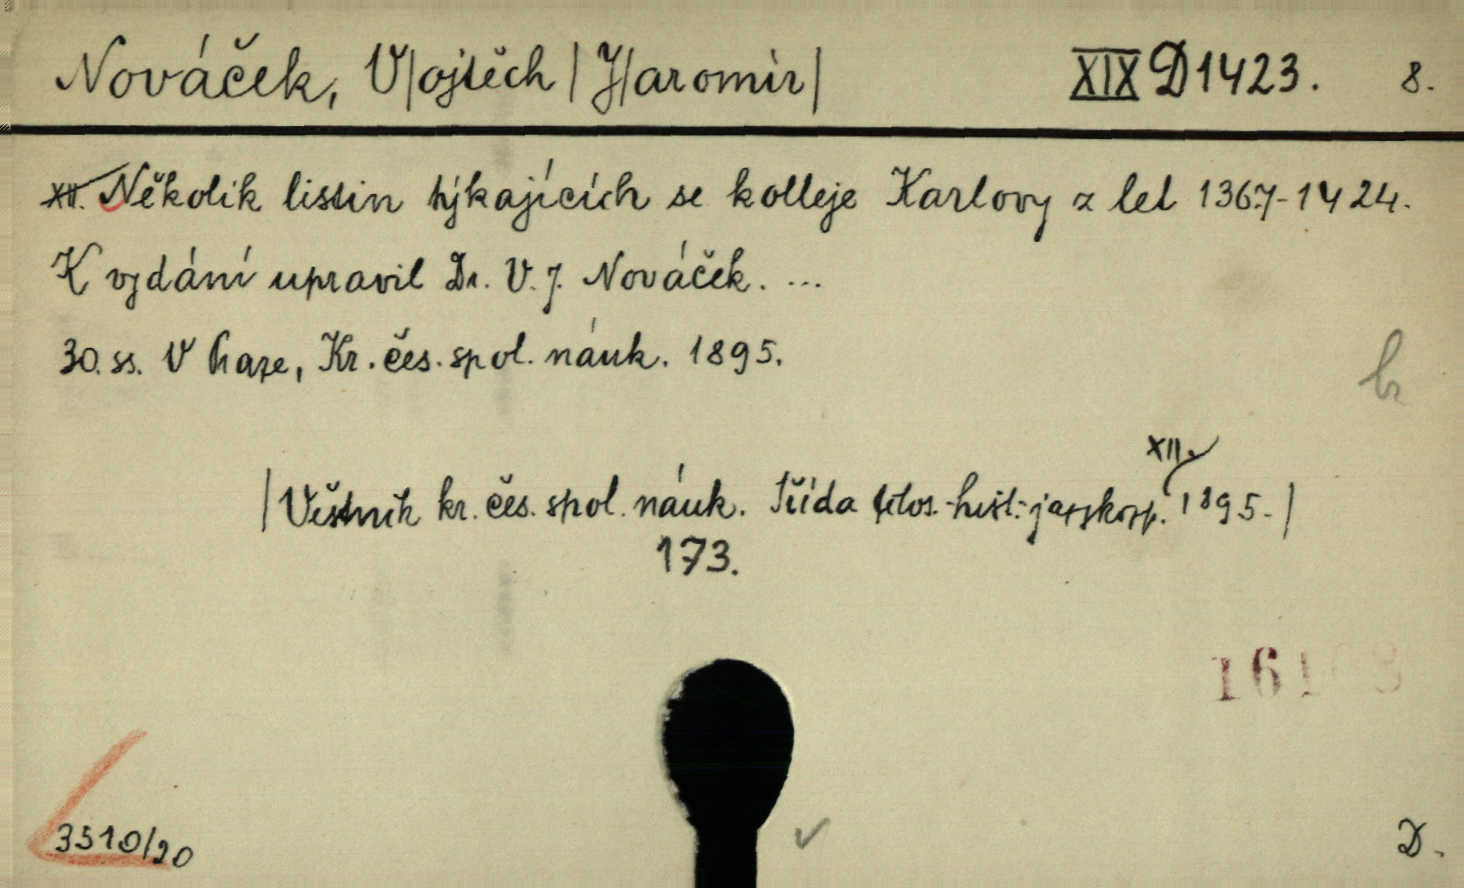 Nováček, V|ojtěch| J|aromír| XIX D 1423. 8.
XII. Několik listin týkajících se kolleje Karlovy z let 1367-1424.
K vydání upravil Dr. V. J. Nováček. ...
30. ss. V Praze, Kr. čes. spol. náuk. 1895.
XII.
|Věstník kr. čes. spol. náuk. Třída filos.-hist.-jazykozp. 1895.|
173.
3510/20
D.